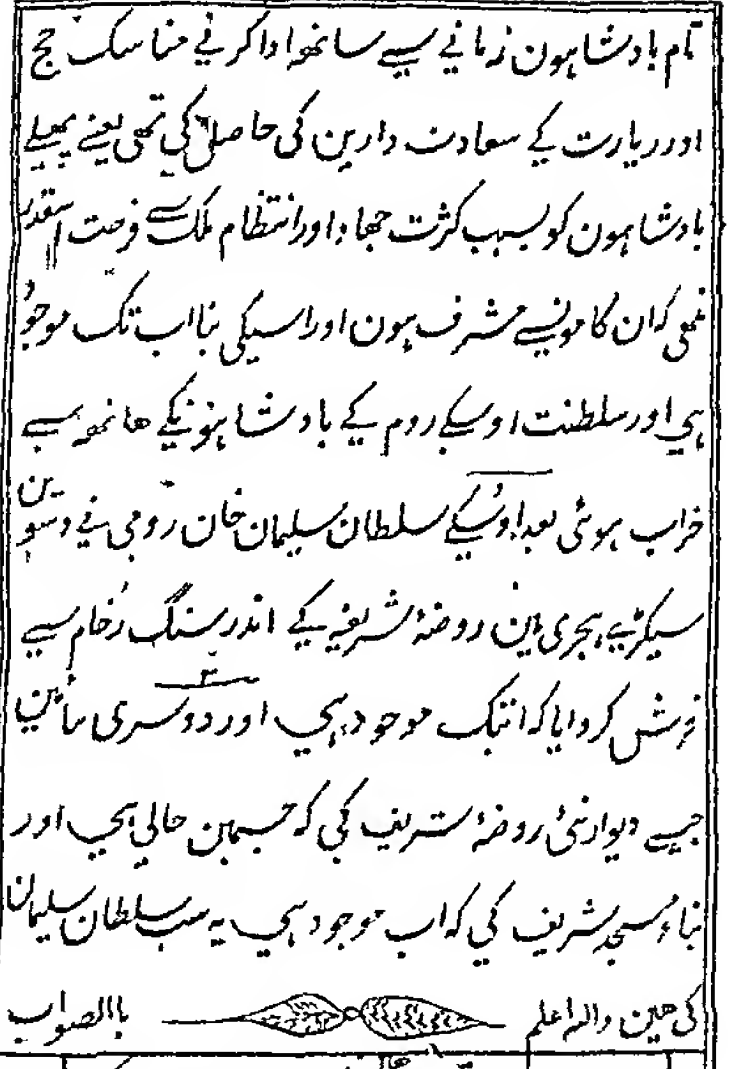 تام بادشاہون زمانے سیے ساتھہ ادا کرنے مناسک حج
اور زیارت کے سعادت دارین کی حاصل کی تھی یعنے پچھلے
بادشاہون کو بسبب کثرت جھاد اور انتظام ملک سے فرصت اسقدر
نتھی کہ ان کامونسے مشرف ہون اور اسیکی بنا اب تک موجود
ہی اور سلطنت اوسکے روم کے بادشاہونکے ھاتھہ سے
خراب ہوئی بعد اوسکے سلطان سلیمان خان رومی نے دسوین
سیکڑیے ہجری مین روضۂ شریفہ کے اندر سنگ رخام سیے
فرش کروایا کہ ابتک موجود ہی اور دوسری بنائین
جیسے دیوار نئی روضۂ شریف کی کہ جسمین جالی ہی اور
بناء مسجد شریف کی کہ اب موجود ہی یہ سب سلطان سلیمان
کی ھین واللہ اعلم باالصواب